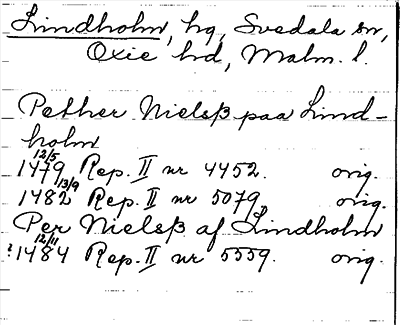 Lindholm, hg, Svedala sn,
Oxie hd, Malm. l.
Pether Nielsß paa Lind-
holm
1479 12/5 Rep. II nr 4452. orig.
1482 13/9 Rep. II nr 5079. orig.
Per Nielsß af Lindholm
?1484 12/11 Rep. II nr 5559. orig.